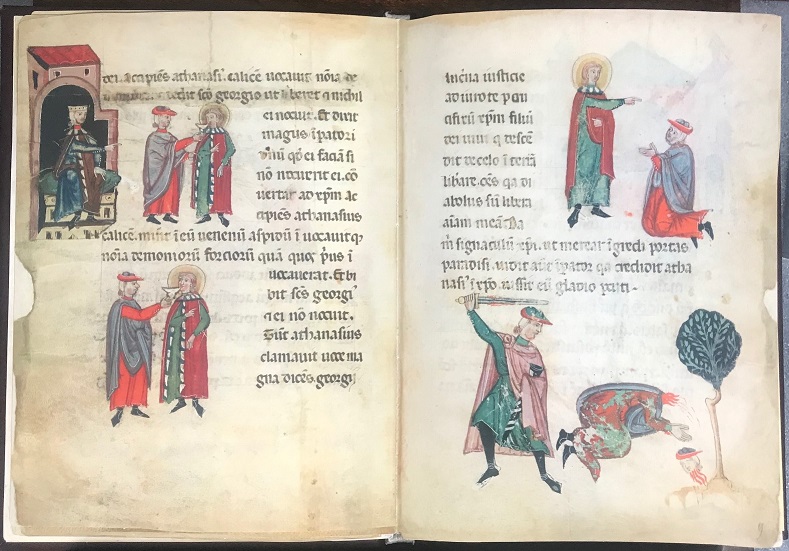 dei. Accipiēs athanasi'. calicē uocauit nōīa de
dedit scō georgio ut biberet q nichil
ei nocuit. Et dixit
magus īpatori
qd ei faciā si
nō nocuerit ei. cō
uertar ad xpm ac
cipiēs athanasius
calicē. misit ī eū uenenū aspidū ī uocauitq
nōīa demoniorū forciorū quā quos p'us ī
uocauerat. Et bi
bit scs georgi'
ei nō nocuit.
Tūc athanasius
clamauit uoce ma
gna dicēs. georgii
iusticie
adiuro te p cru
cifixū xpm filiū
dei uiui q desce
dit de celo ī terrā
libare. oēs qa di
abolus sūt libera
aīam meā. Da
m signaculū xpi. ut merear īgredi portas
paradisi. uidit aut īpator qa credidit atha
nasi' ī xpo. iussit eū gladio